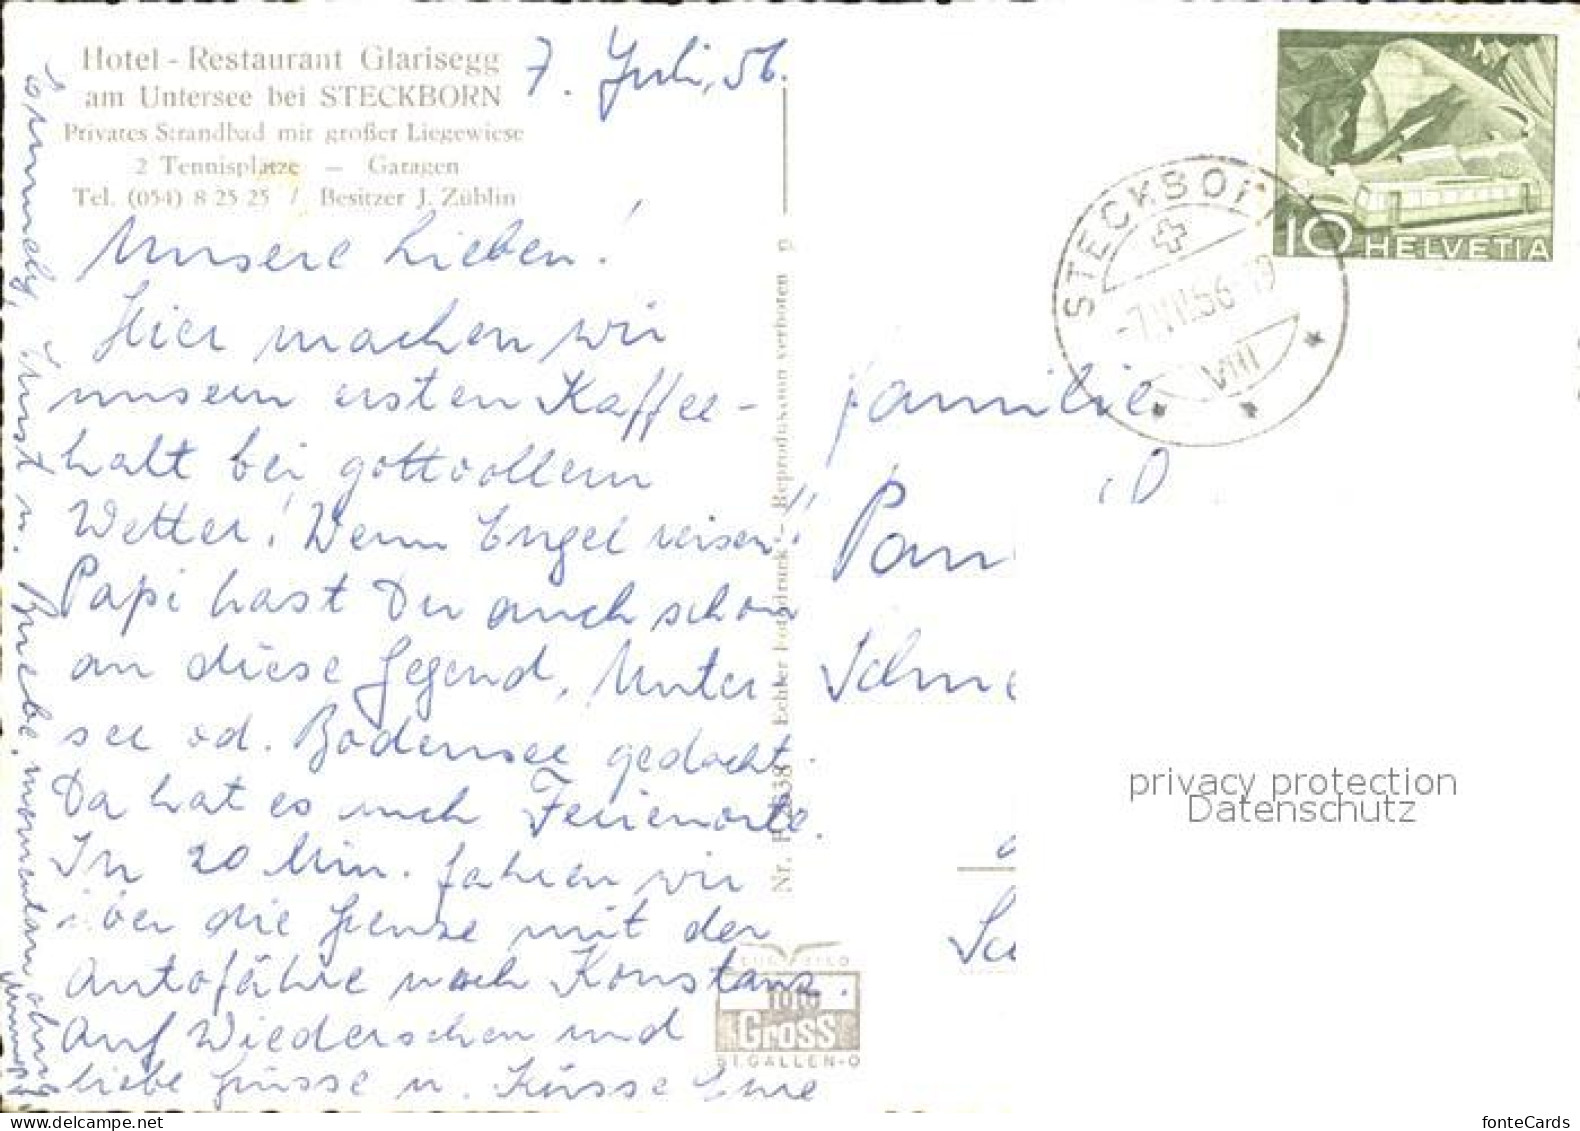 Hotel - Restaurant Glarisegg
am Untersee bei STECKBORN
Privates Strandbad mit großer Liegewiese
2 Tennisplätze — Garagen
Tel. (054) 8 25 25 / Besitzer J. Züblin
7. Juli, 56.
Unsere Lieben!
Hier machen wir
unsern ersten Kaffee-
halt bei gottvollem
Wetter! Wenn Engel reisen!!
Papi hast Du auch schon
an diese Gegend, Unter
see od. Bodensee gedacht.
Da hat es auch Ferienorte.
In 20 Min. fahren wir
über die Grenze mit der
Autofähre nach Konstanz.
Auf Wiedersehen und
liebe Grüsse u. Küsse Eure
Ernst u. Buebe, momentan ohne
Nr. Echler Fotodruck - Reproduktion verboten
foto
Gross
ST. GALLEN-O
HELVETIA
10
STECKBORN
-7.VII.56-19
VIII
Familie
privacy protection
Datenschutz
fonteCards